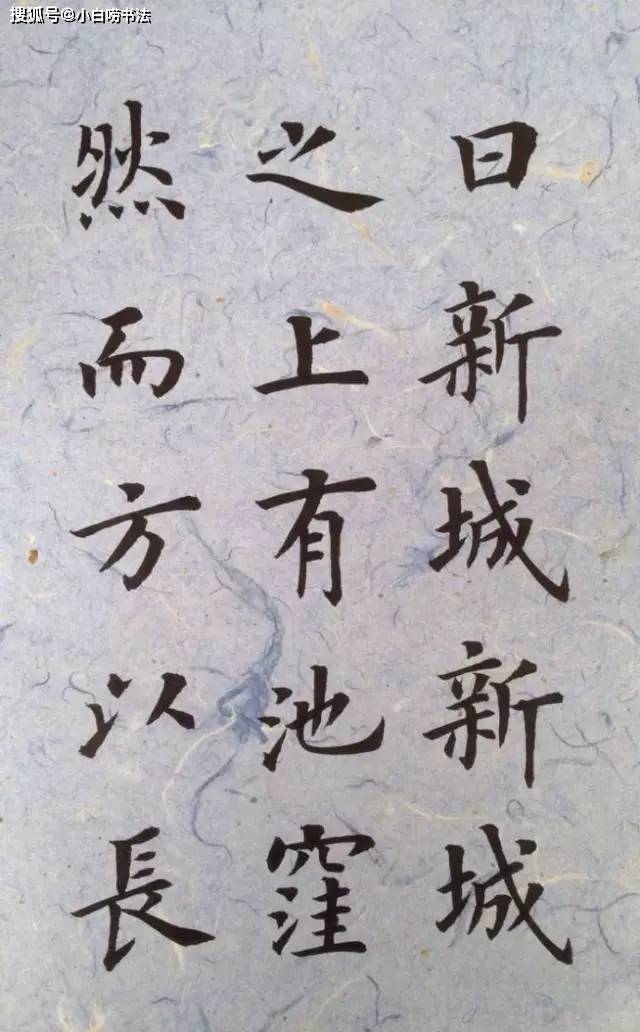 搜狐号@小白唠书法
曰新城新城
之上有池窪
然而方以長